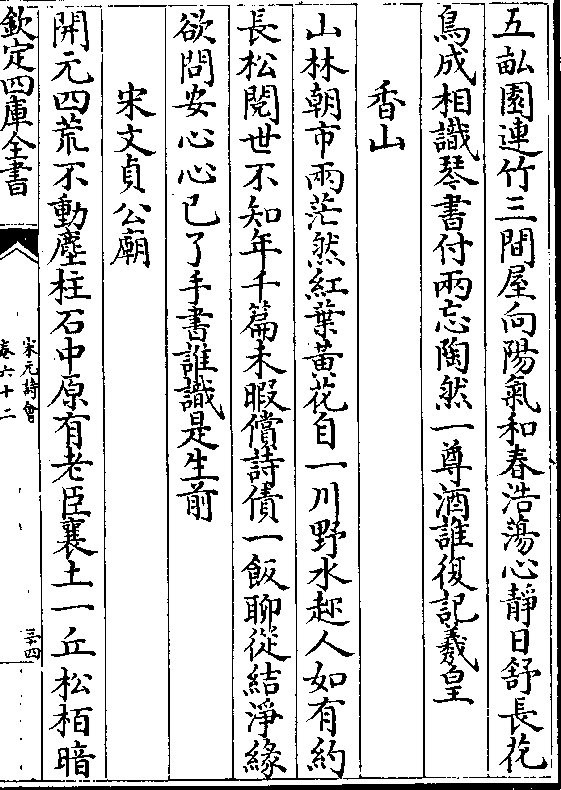 五畝園連竹三間屋向陽氣和春浩蕩心靜日舒長花
鳥成相識琴書付兩忘陶然一尊酒誰復記羲皇
香山
山林朝市兩茫然紅葉黃花自一川野水趂人如有約
長松閱世不知年千篇未暇償詩債一飯聊從結淨緣
欲問安心心已了手書誰識是生前
宋文貞公廟
開元四荒不動塵柱石中原有老臣襄土一丘松栢暗
欽定四庫全書
宋元詩會
卷六十二
三十四